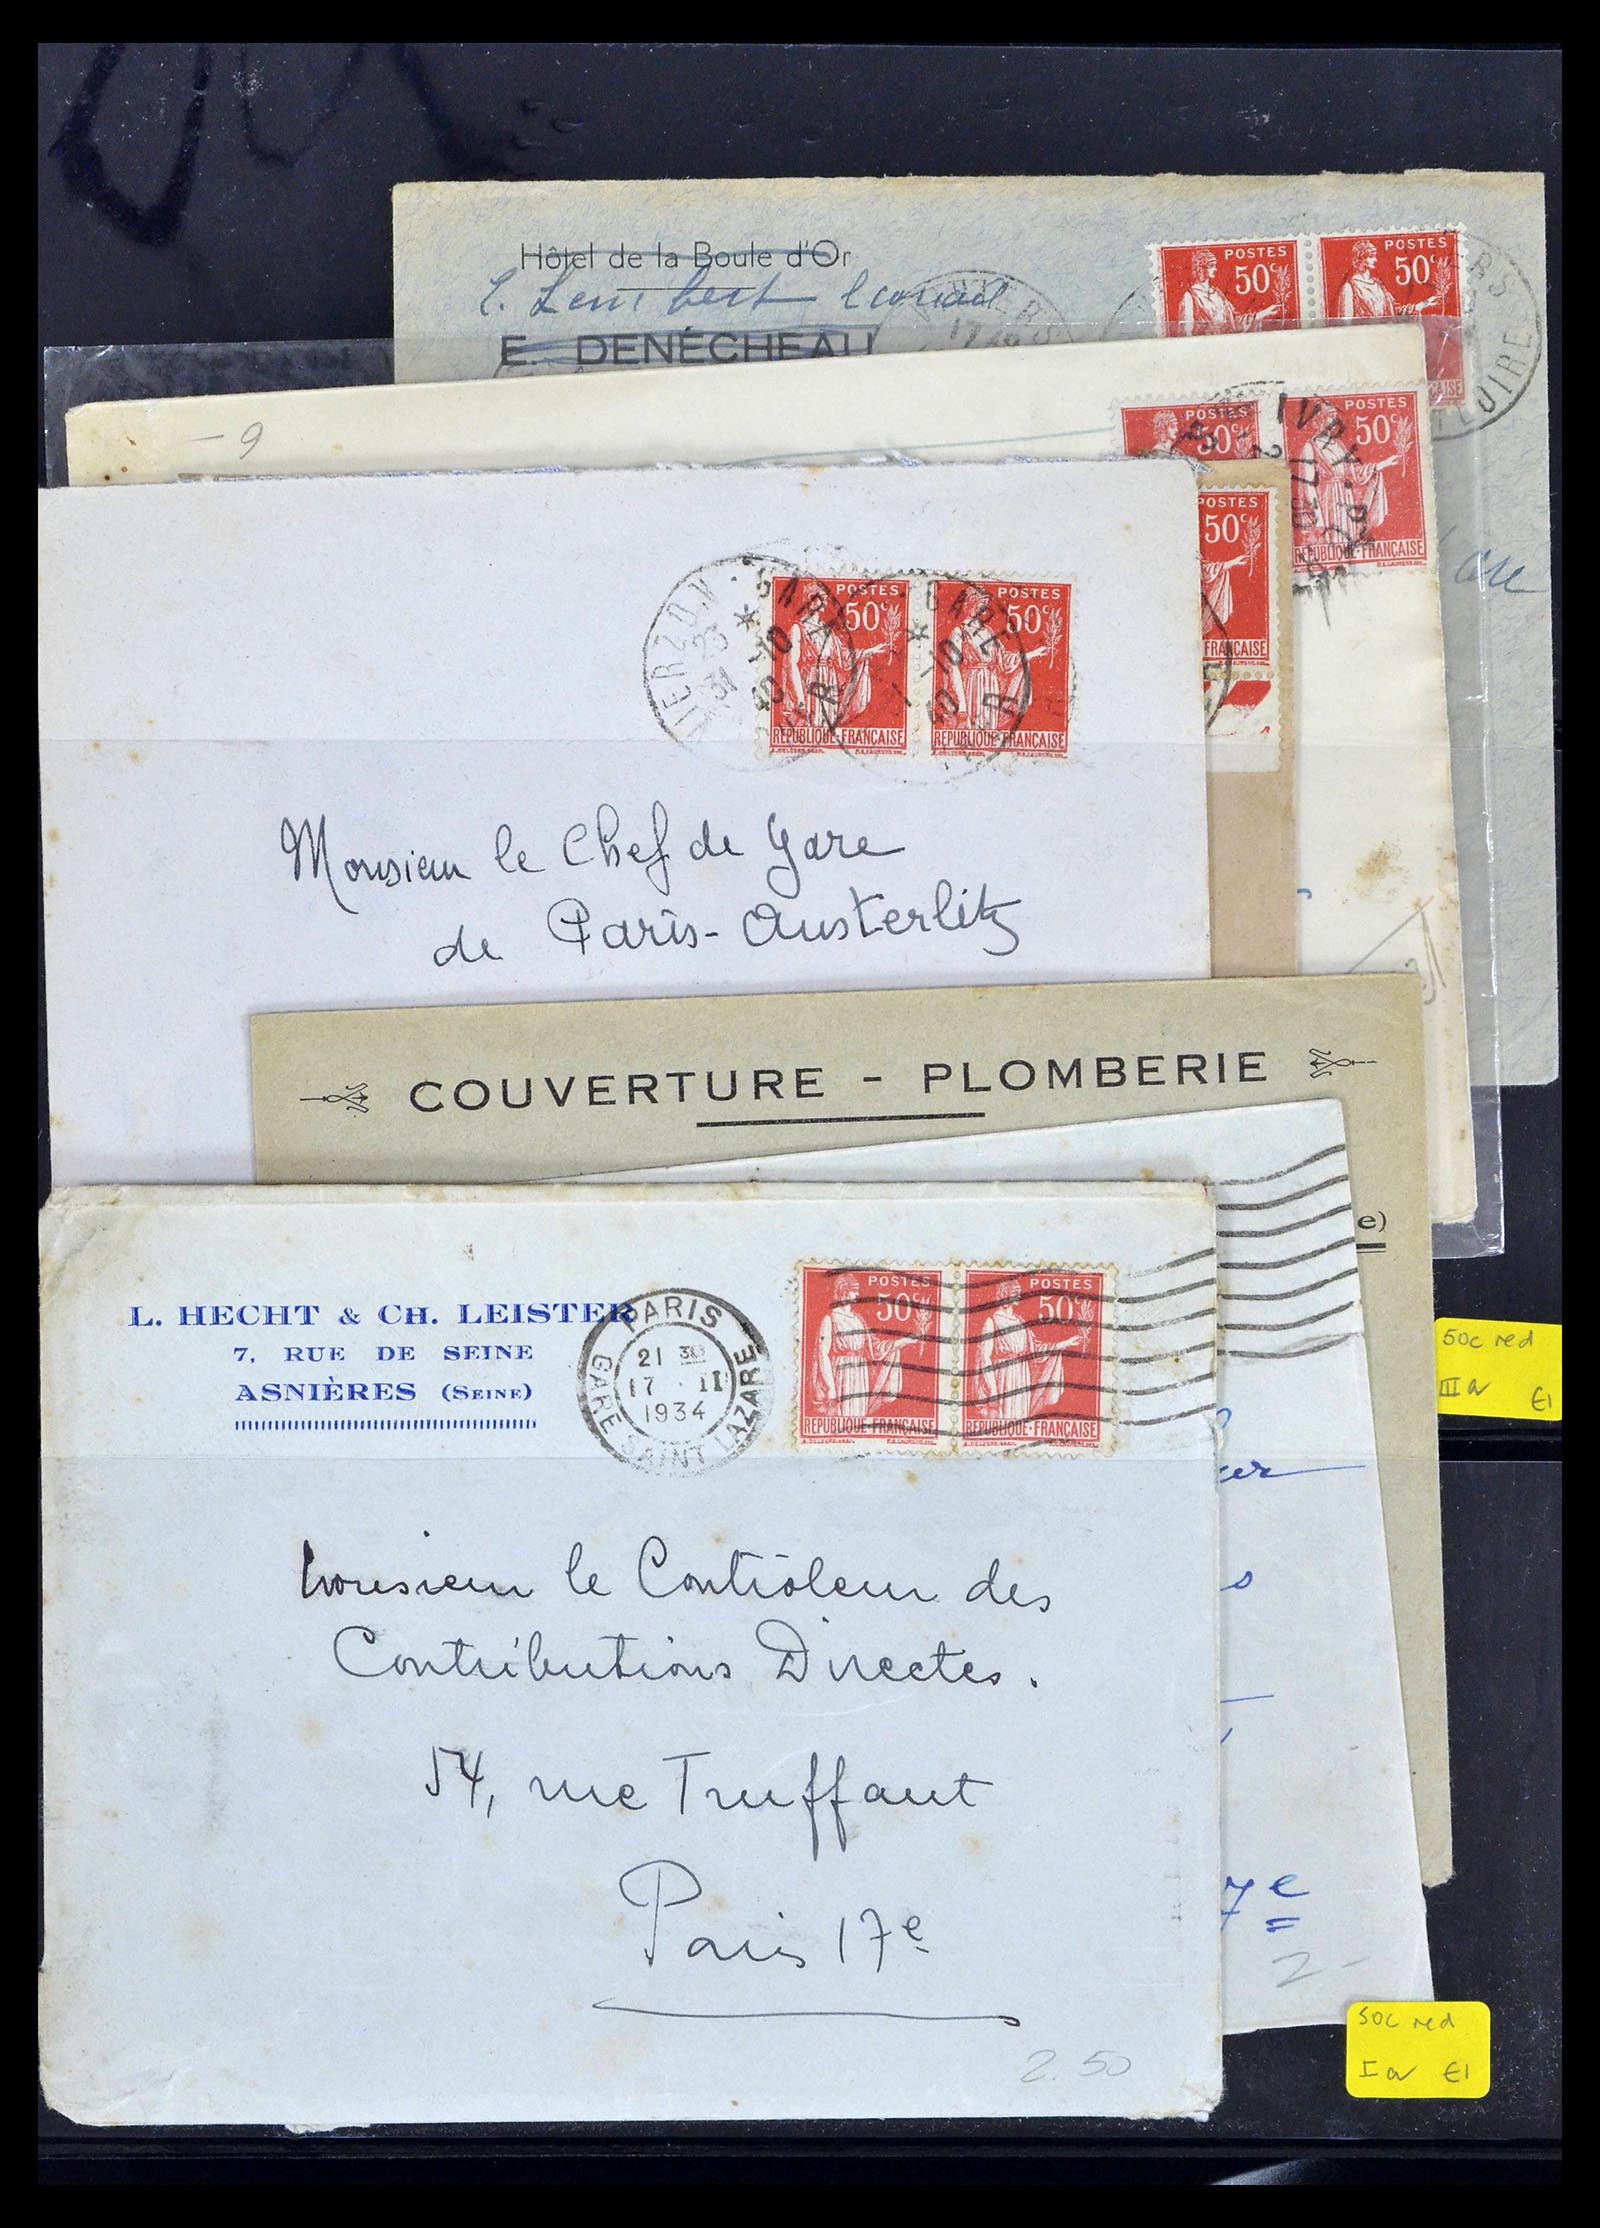 Hôtel de la Boule d'Or
E. DENÉCHEAU
POSTES
50c
POSTES
50c
LOIRE
- 9
POSTES
50c
IVRY
POSTES
50c
REPUBLIQUE-FRANÇAISE
POSTES
50c
FRANÇAISE
VIERZON - GARE
23
31 -10
40
CHER
POSTES
50c
REPUBLIQUE-FRANÇAISE
GARE
-10
40
POSTES
50c
REPUBLIQUE-FRANÇAISE
Monsieur le Chef de Gare
de Paris-Austerlitz
COUVERTURE - PLOMBERIE
e)
L. HECHT & CH. LEISTER
7, RUE DE SEINE
ASNIÈRES (SEINE)
PARIS
21 30
17 · II
1934
GARE SAINT LAZARE
POSTES
50c
REPUBLIQUE-FRANÇAISE
POSTES
50c
REPUBLIQUE-FRANÇAISE
50c red
III a €1
Monsieur le Contrôleur des
Contributions Directes.
54, rue Truffaut
Paris 17e
7e
2-
2.50
50c red
I a €1